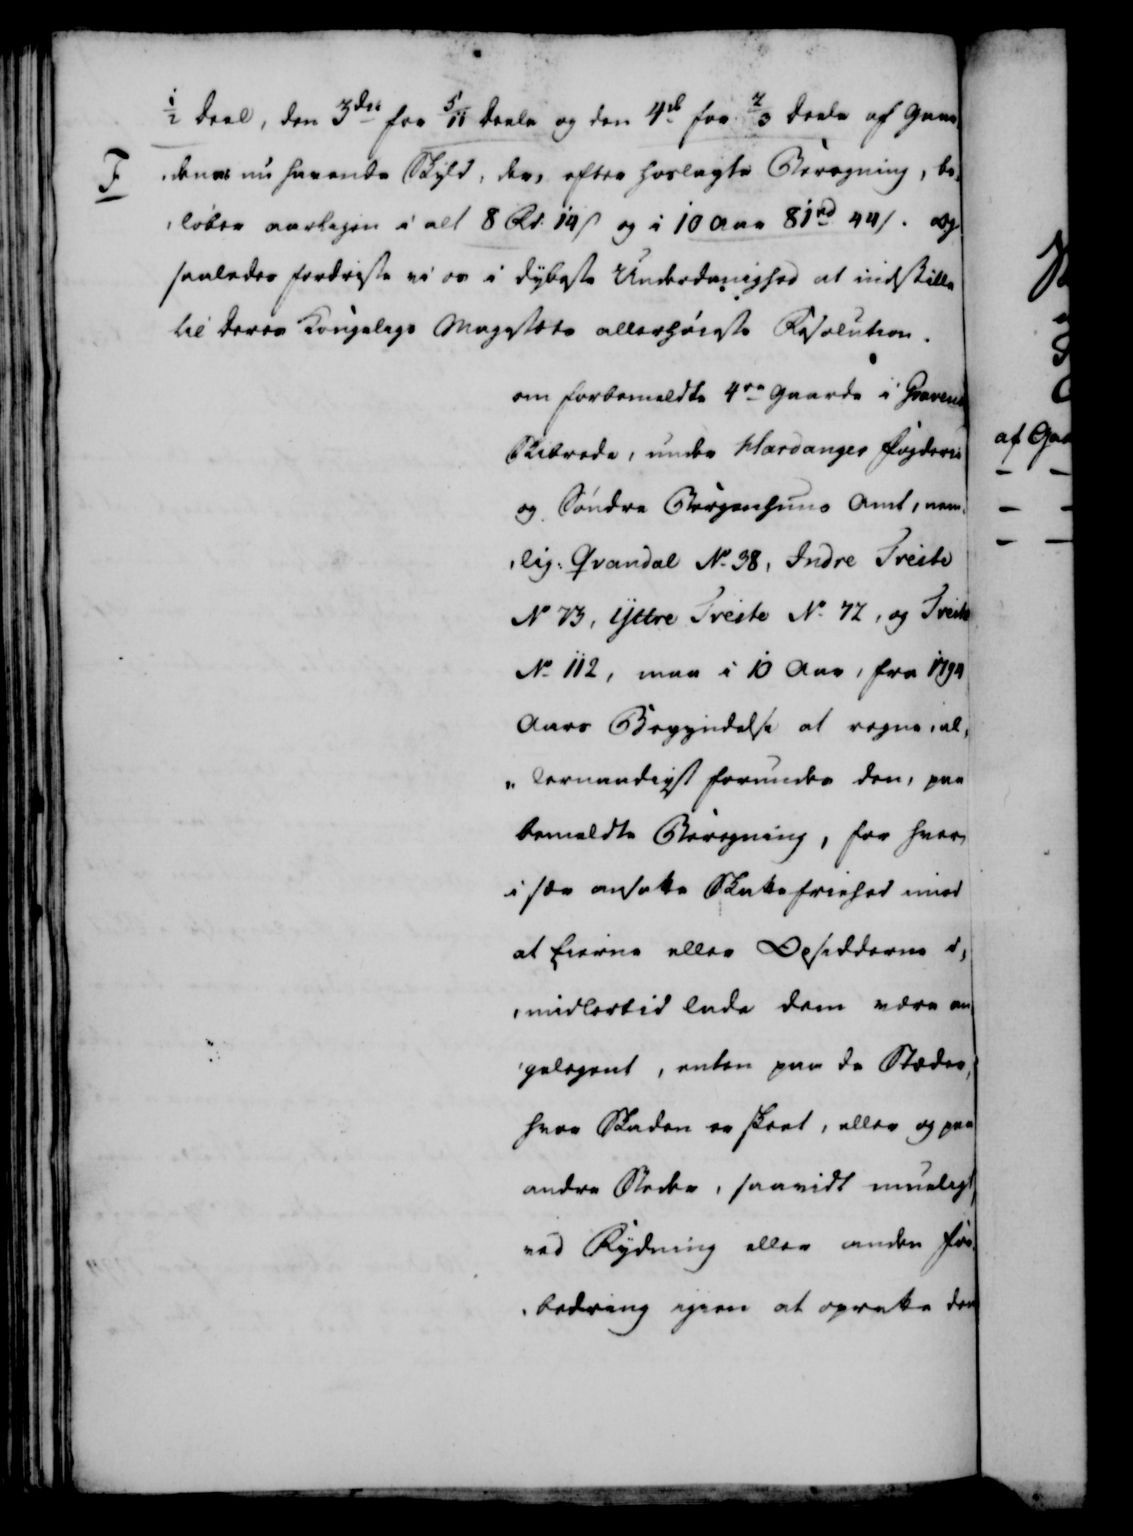 ½ Deel, den 3die for 5/11 Deele og den 4de for 2/3 Deele af Gaar-
F
dens nu havende Skyld, der, efter hoslagte Beregning, be-
løber aarligen i alt 8 Rd. 14 s og i 10 Aar 81 rd 44 s. Og
saaledes fordriste vi os i dybeste Underdanighed at indstille
til Deres Kongelige Majestæts allerhøieste Resolution.
om forbemeldte 4re Gaarde i Gravens
Skibrede, under Hardanger Fogderie
og Søndre Bergenhuus Amt, nem-
lig: Qvandal No. 38, Indre Treite
No 73, Yttre Treite No. 72, og Treite
No. 112, maa i 10 Aar, fra 1794
Aars Begyndelse at regne, al-
lernaadigst forundes den, paa
bemeldte Beregning, for hver
i sær ansatte Skatte frihed imod
at Eierne eller Opsidderne i-
midlertid lade dem være an-
gelegent, enten paa de Stæder,
hvor Skaden er skeet, eller og paa
andre Steder, saavidt mueligt
ved Rydning eller anden for-
bedring igien at oprette den
af Gaa